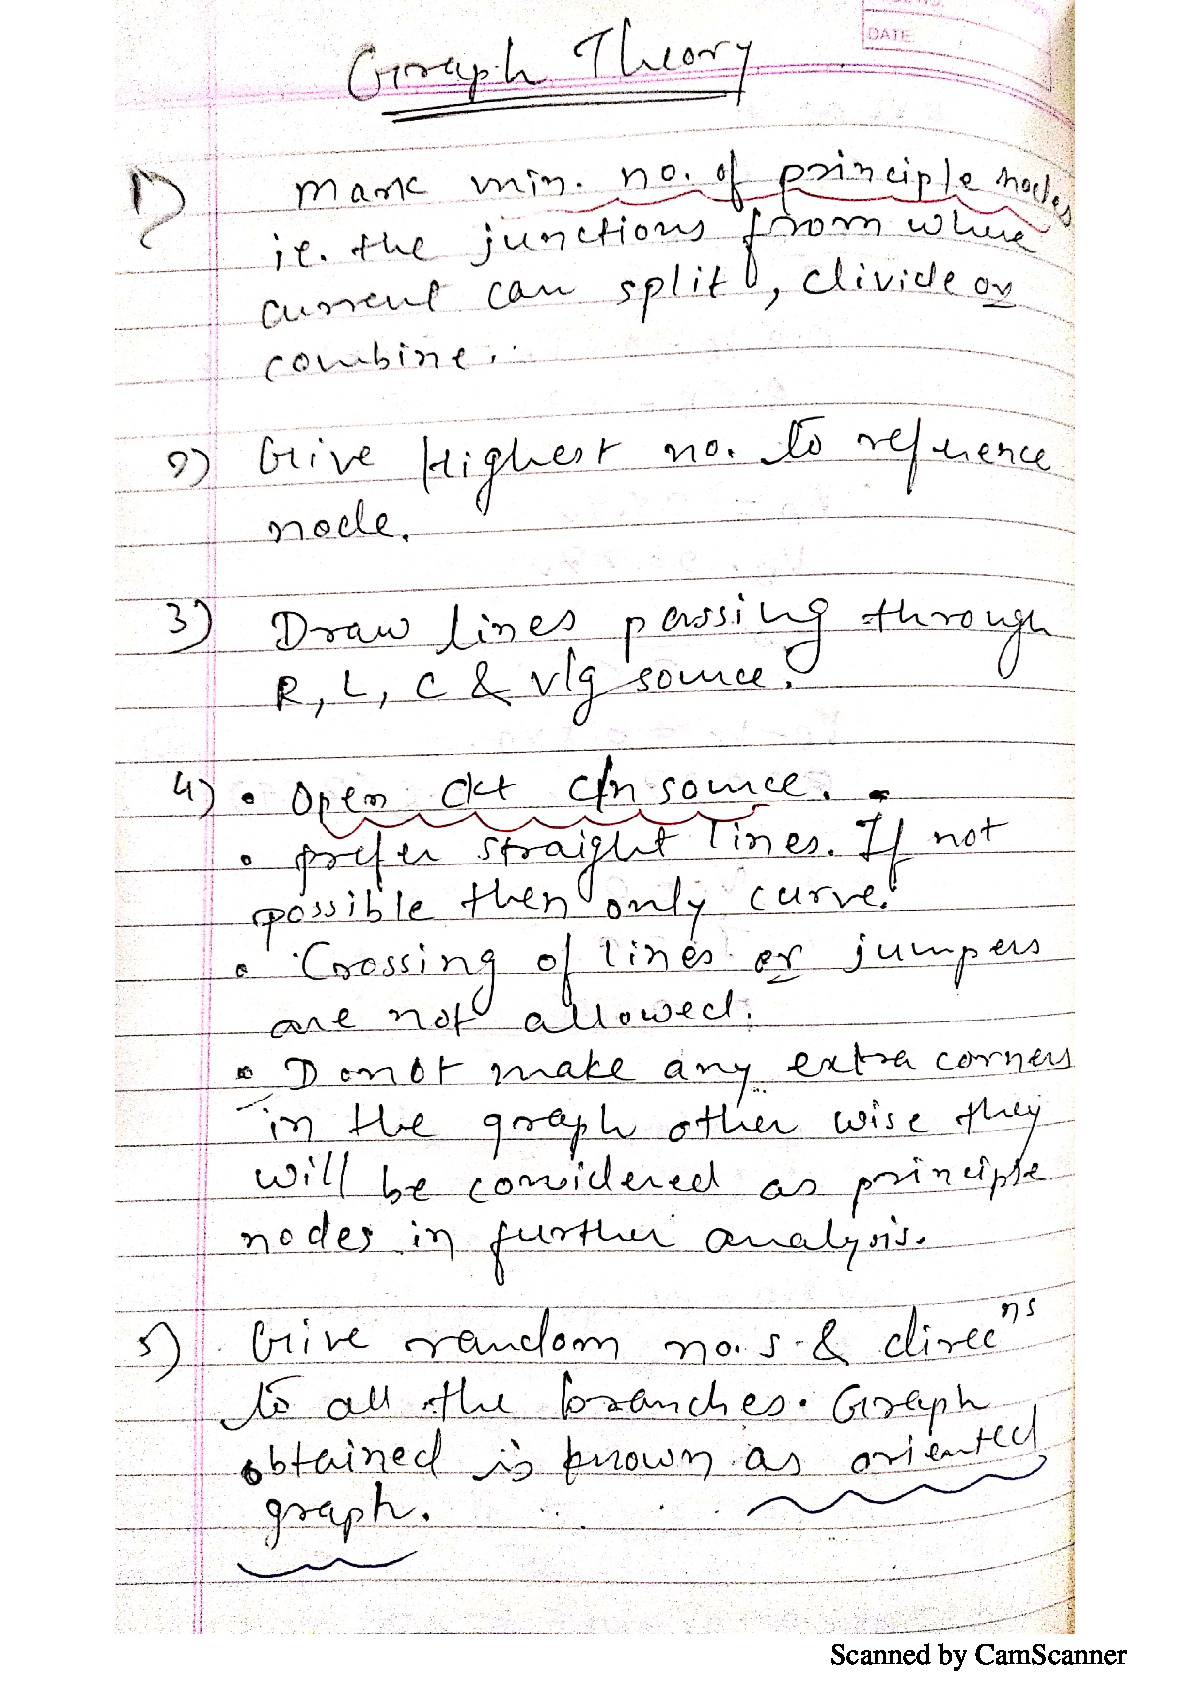 DATE
Graph Theory
1) Mark min. no. of principle nodes
ie. the junctions from where
current can split, divide or
combine.
2) Give Highest no. to reference
node.
3) Draw lines passing through
R, L, C & v/g source.
4) • Open ckt c/n source.
• prefer straight lines. If not
possible then only curve.
• Crossing of lines or jumpers
are not allowed.
• Donot make any extra corners
in the graph other wise they
will be considered as principle
nodes in further analysis.
5) Give random no.s & direcⁿˢ
to all the branches. Graph
obtained is known as oriented
graph.
Scanned by CamScanner